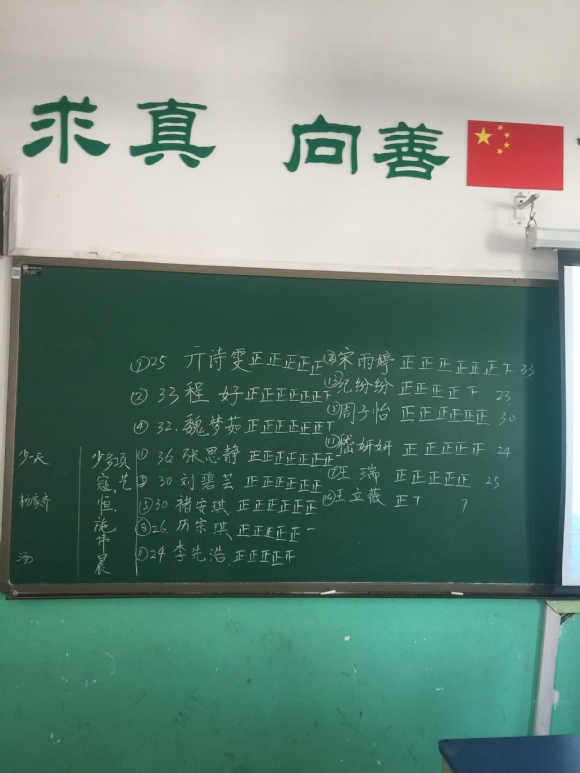 求真 向善
⑦25 亓诗雯 正正正正正
② 33 程 好 正正正正正正下
④ 32. 魏梦茹 正正正正正正丅
① 36 张思静 正正正正正正正一
⑤ 30 刘碧芸 正正正正正正
⑤ 30 褚安琪 正正正正正正
⑥ 26. 历宗琪 正正正正正一
24 李先浩 正正正正正
宋雨婷 正正正正正正下 33
纪纷纷 正正正正下 23
周子怡 正正正正正正 30
⑪ 嵇妍妍 正正正正正 24
⑦ 王 瑞 正正正正正 25
王立薇 正丅 7
杨家齐
汤
寇
恒
伟
晨